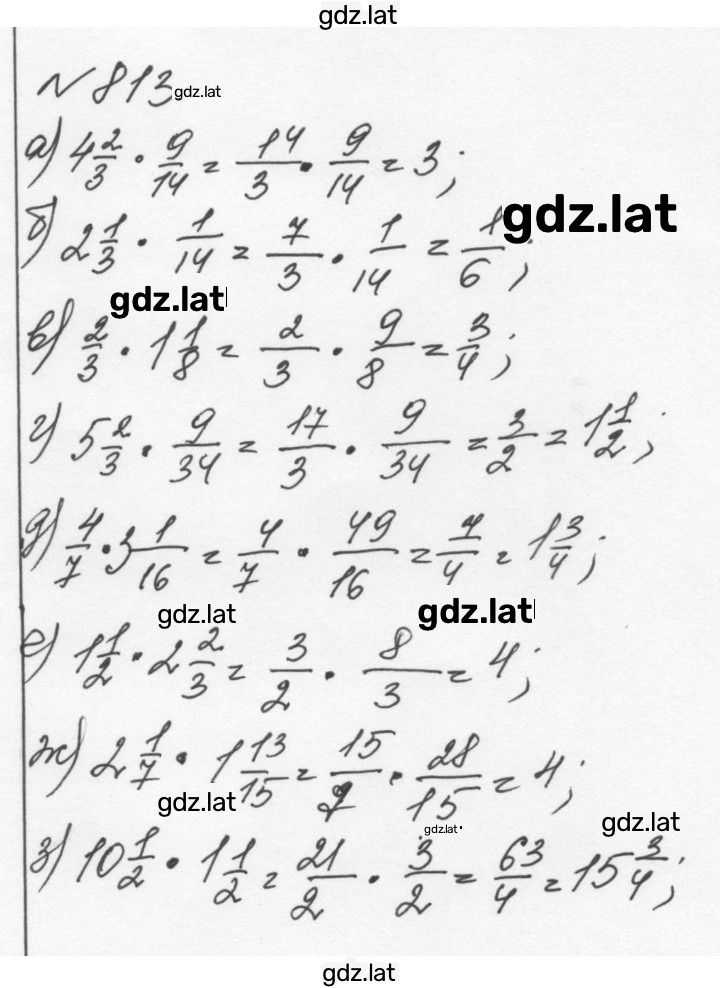 gdz.lat
№ 813 gdz.lat
а) 4 2/3 · 9/14 = 14/3 · 9/14 = 3;
б) 2 1/3 · 1/14 = 7/3 · 1/14 = 1/6; gdz.lat
gdz.lat
в) 2/3 · 1 1/8 = 2/3 · 9/8 = 3/4;
г) 5 2/3 · 9/34 = 17/3 · 9/34 = 3/2 = 1 1/2;
д) 4/7 · 3 1/16 = 4/7 · 49/16 = 7/4 = 1 3/4;
gdz.lat gdz.lat
е) 1 1/2 · 2 2/3 = 3/2 · 8/3 = 4;
ж) 2 1/7 · 1 13/15 = 15/7 · 28/15 = 4;
gdz.lat gdz.lat gdz.lat
з) 10 1/2 · 1 1/2 = 21/2 · 3/2 = 63/4 = 15 3/4;
gdz.lat